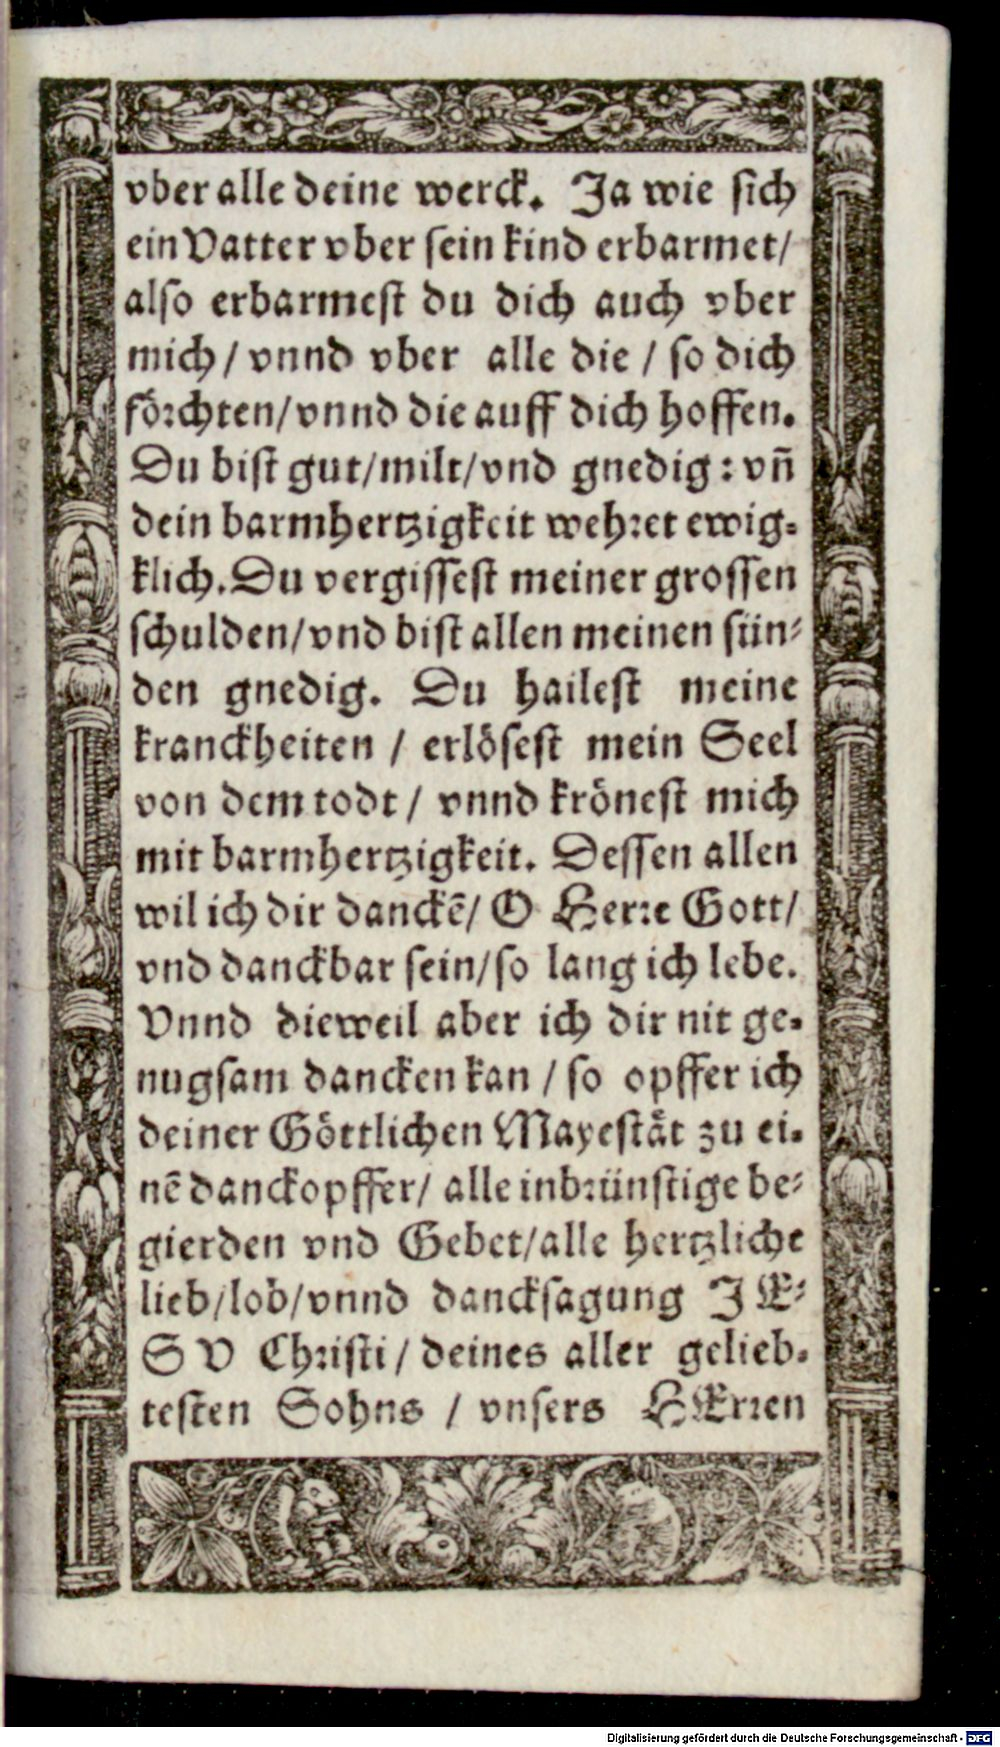 vber alle deine werck. Ja wie sich
ein Vatter vber sein kind erbarmet/
also erbarmest du dich auch vber
mich / vnnd vber alle die / so dich
förchten/vnnd die auff dich hoffen.
Du bist gut/milt/vnd gnedig: vñ
dein barmhertzigkeit wehret ewig-
klich. Du vergissest meiner grossen
schulden/vnd bist allen meinen sün-
den gnedig. Du hailest meine
kranckheiten / erlösest mein Seel
von dem todt / vnnd krönest mich
mit barmhertzigkeit. Dessen allen
wil ich dir danckē/ O Herre Gott/
vnd danckbar sein/so lang ich lebe.
Vnnd dieweil aber ich dir nit ge-
nugsam dancken kan / so opffer ich
deiner Göttlichen Mayestät zu ei-
nē danckopffer/ alle inbrünstige be-
gierden vnd Gebet/alle hertzliche
lieb/lob/vnnd dancksagung JE-
SV Christi / deines aller gelieb-
testen Sohns / vnsers HErren
Digitalisierung gefördert durch die Deutsche Forschungsgemeinschaft - DFG